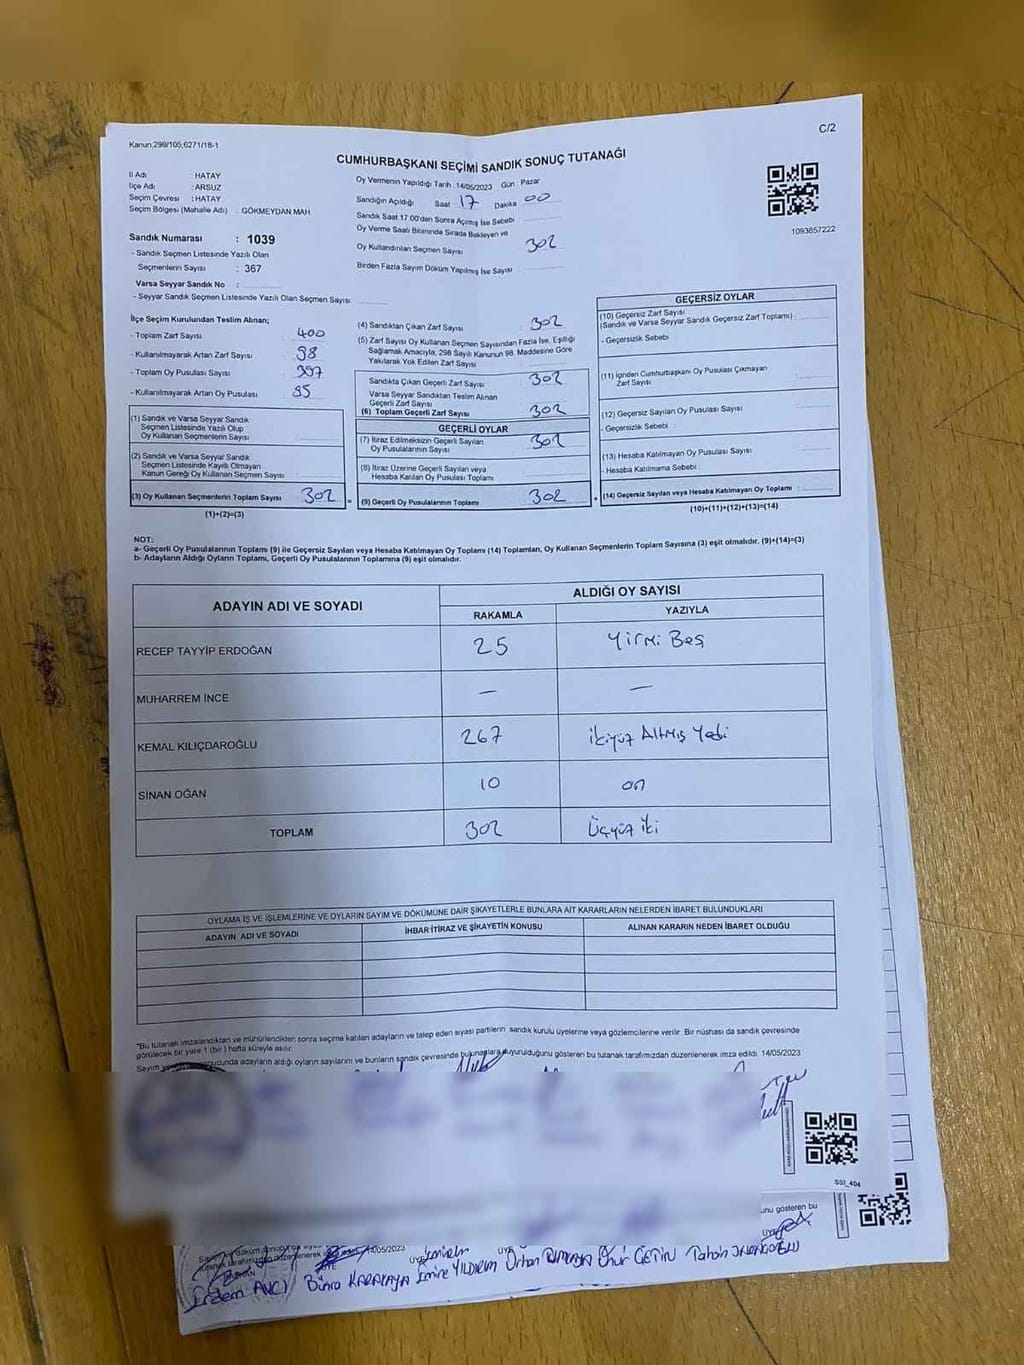 C/2
Kanun;298/105,6271/18-1
CUMHURBAŞKANI SEÇİMİ SANDIK SONUÇ TUTANAĞI
İl Adı : HATAY
İlçe Adı : ARSUZ
Seçim Çevresi : HATAY
Seçim Bölgesi (Mahalle Adı) : GÖKMEYDAN MAH
Sandık Numarası : 1039
- Sandık Seçmen Listesinde Yazılı Olan
Seçmenlerin Sayısı : 367
Varsa Seyyar Sandık No :
- Seyyar Sandık Seçmen Listesinde Yazılı Olan Seçmen Sayısı
Oy Vermenin Yapıldığı Tarih :14/05/2023 Gün : Pazar
Sandığın Açıldığı Saat 17 Dakika 00
Sandık Saat 17.00'den Sonra Açılmış İse Sebebi
Oy Verme Saati Bitiminde Sırada Bekleyen ve
Oy Kullandırılan Seçmen Sayısı 302
Birden Fazla Sayım Döküm Yapılmış İse Sayısı
1093857222
İlçe Seçim Kurulundan Teslim Alınan;
- Toplam Zarf Sayısı : 400
- Kullanılmayarak Artan Zarf Sayısı : 98
- Toplam Oy Pusulası Sayısı : 397
- Kullanılmayarak Artan Oy Pusulası : 95
(1) Sandık ve Varsa Seyyar Sandık
Seçmen Listesinde Yazılı Olup
Oy Kullanan Seçmenlerin Sayısı :
(2) Sandık ve Varsa Seyyar Sandık
Seçmen Listesinde Kayıtlı Olmayan
Kanun Gereği Oy Kullanan Seçmen Sayısı :
(3) Oy Kullanan Seçmenlerin Toplam Sayısı : 302
(1)+(2)=(3)
(4) Sandıktan Çıkan Zarf Sayısı : 302
(5) Zarf Sayısı Oy Kullanan Seçmen Sayısından Fazla İse, Eşitliği
Sağlamak Amacıyla; 298 Sayılı Kanunun 98. Maddesine Göre
Yakılarak Yok Edilen Zarf Sayısı
Sandıkta Çıkan Geçerli Zarf Sayısı : 302
Varsa Seyyar Sandıktan Teslim Alınan
Geçerli Zarf Sayısı
(6) Toplam Geçerli Zarf Sayısı : 302
GEÇERLİ OYLAR
(7) İtiraz Edilmeksizin Geçerli Sayılan
Oy Pusulalarının Sayısı : 302
(8) İtiraz Üzerine Geçerli Sayılan veya
Hesaba Katılan Oy Pusulaları Toplamı
(9) Geçerli Oy Pusulalarının Toplamı : 302
GEÇERSİZ OYLAR
(10) Geçersiz Zarf Sayısı
(Sandık ve Varsa Seyyar Sandık Geçersiz Zarf Toplamı) :
- Geçersizlik Sebebi :
(11) İçinden Cumhurbaşkanı Oy Pusulası Çıkmayan
Zarf Sayısı :
(12) Geçersiz Sayılan Oy Pusulası Sayısı :
- Geçersizlik Sebebi :
(13) Hesaba Katılmayan Oy Pusulası Sayısı :
- Hesaba Katılmama Sebebi :
(14) Geçersiz Sayılan veya Hesaba Katılmayan Oy Toplamı :
(10)+(11)+(12)+(13)=(14)
NOT:
a- Geçerli Oy Pusulalarının Toplamı (9) ile Geçersiz Sayılan veya Hesaba Katılmayan Oy Toplamı (14) Toplamları, Oy Kullanan Seçmenlerin Toplam Sayısına (3) eşit olmalıdır. (9)+(14)=(3)
b- Adayların Aldığı Oyların Toplamı, Geçerli Oy Pusulalarının Toplamına (9) eşit olmalıdır.
ADAYIN ADI VE SOYADI
ALDIĞI OY SAYISI
RAKAMLA YAZIYLA
RECEP TAYYİP ERDOĞAN 25 Yirmi Beş
MUHARREM İNCE — —
KEMAL KILIÇDAROĞLU 267 İkiyüz Altmış Yedi
SİNAN OĞAN 10 on
TOPLAM 302 Üçyüz iki
OYLAMA İŞ VE İŞLEMLERİNE VE OYLARIN SAYIM VE DÖKÜMÜNE DAİR ŞİKAYETLERLE BUNLARA AİT KARARLARIN NELERDEN İBARET BULUNDUKLARI
ADAYIN ADI VE SOYADI İHBAR İTİRAZ VE ŞİKAYETİN KONUSU ALINAN KARARIN NEDEN İBARET OLDUĞU
"Bu tutanak imzalandıktan ve mühürlendikten sonra seçime katılan adayların ve talep eden siyasi partilerin sandık kurulu üyelerine veya gözlemcilerine verilir. Bir nüshası da sandık çevresinde
görülecek bir yere 1 (bir) hafta süreyle asılır.
adayların aldığı oyların sayılarını ve bunların sandık çevresinde bulunanlara duyurulduğunu gösteren bu tutanak tarafımızdan düzenlenerek imza edildi. 14/05/2023
SSİ_404
unu gösteren bu
ÜYE
Erdem AVCI Büşra KARAKAYA Emine YILDIRIM Orhan Onur ÇETİN